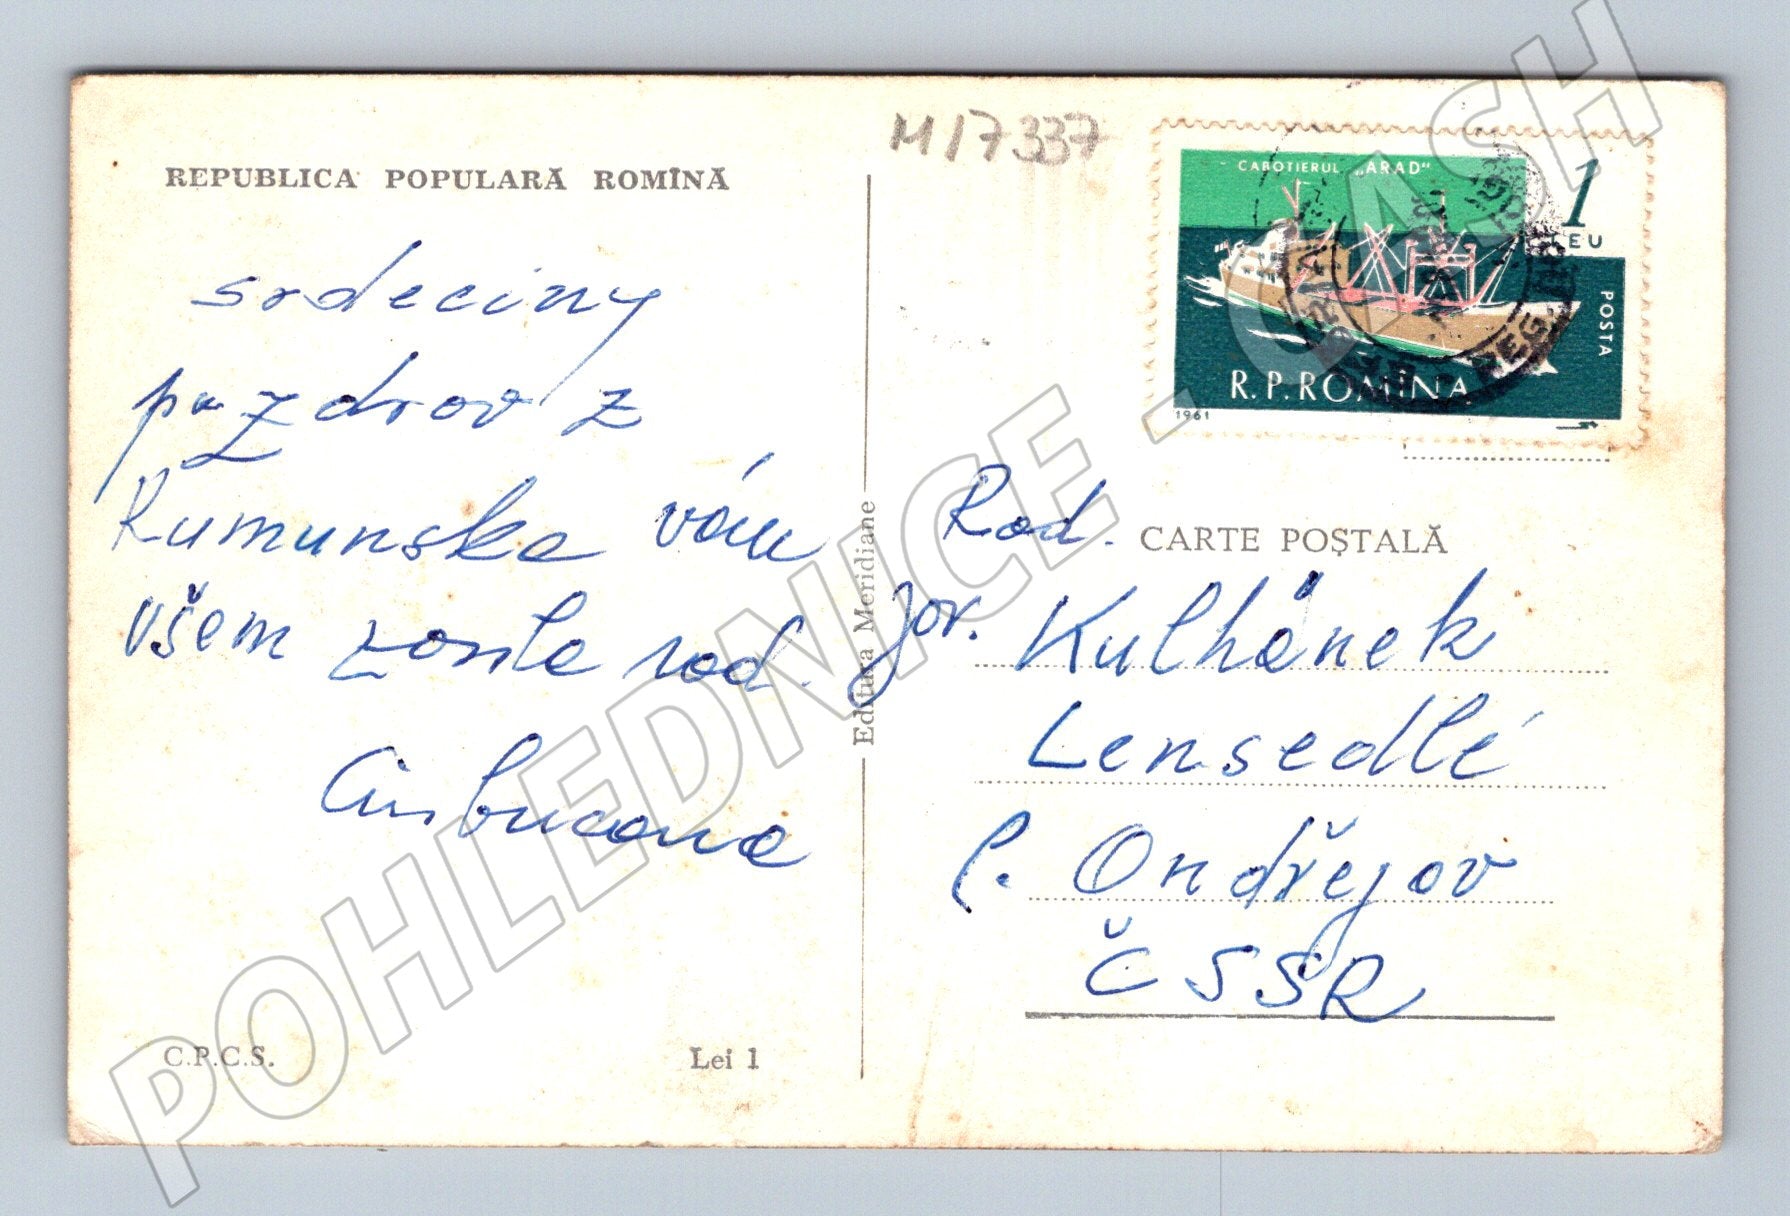 M17337
REPUBLICA POPULARĂ ROMÎNĂ
CABOTIERUL „ARAD"
1
LEU
POSTA
R.P.ROMÎNA
1961
srdeciny
pozdrov z
Rumunska vám
všem zasila rod.
Editura Meridiane
CARTE POȘTALĂ
Rod.
Jar. Kulhánek
Lensedlé
p. Ondřejov
ČSSR
C.P.C.S.
Lei 1
POHLEDNICE - CASH